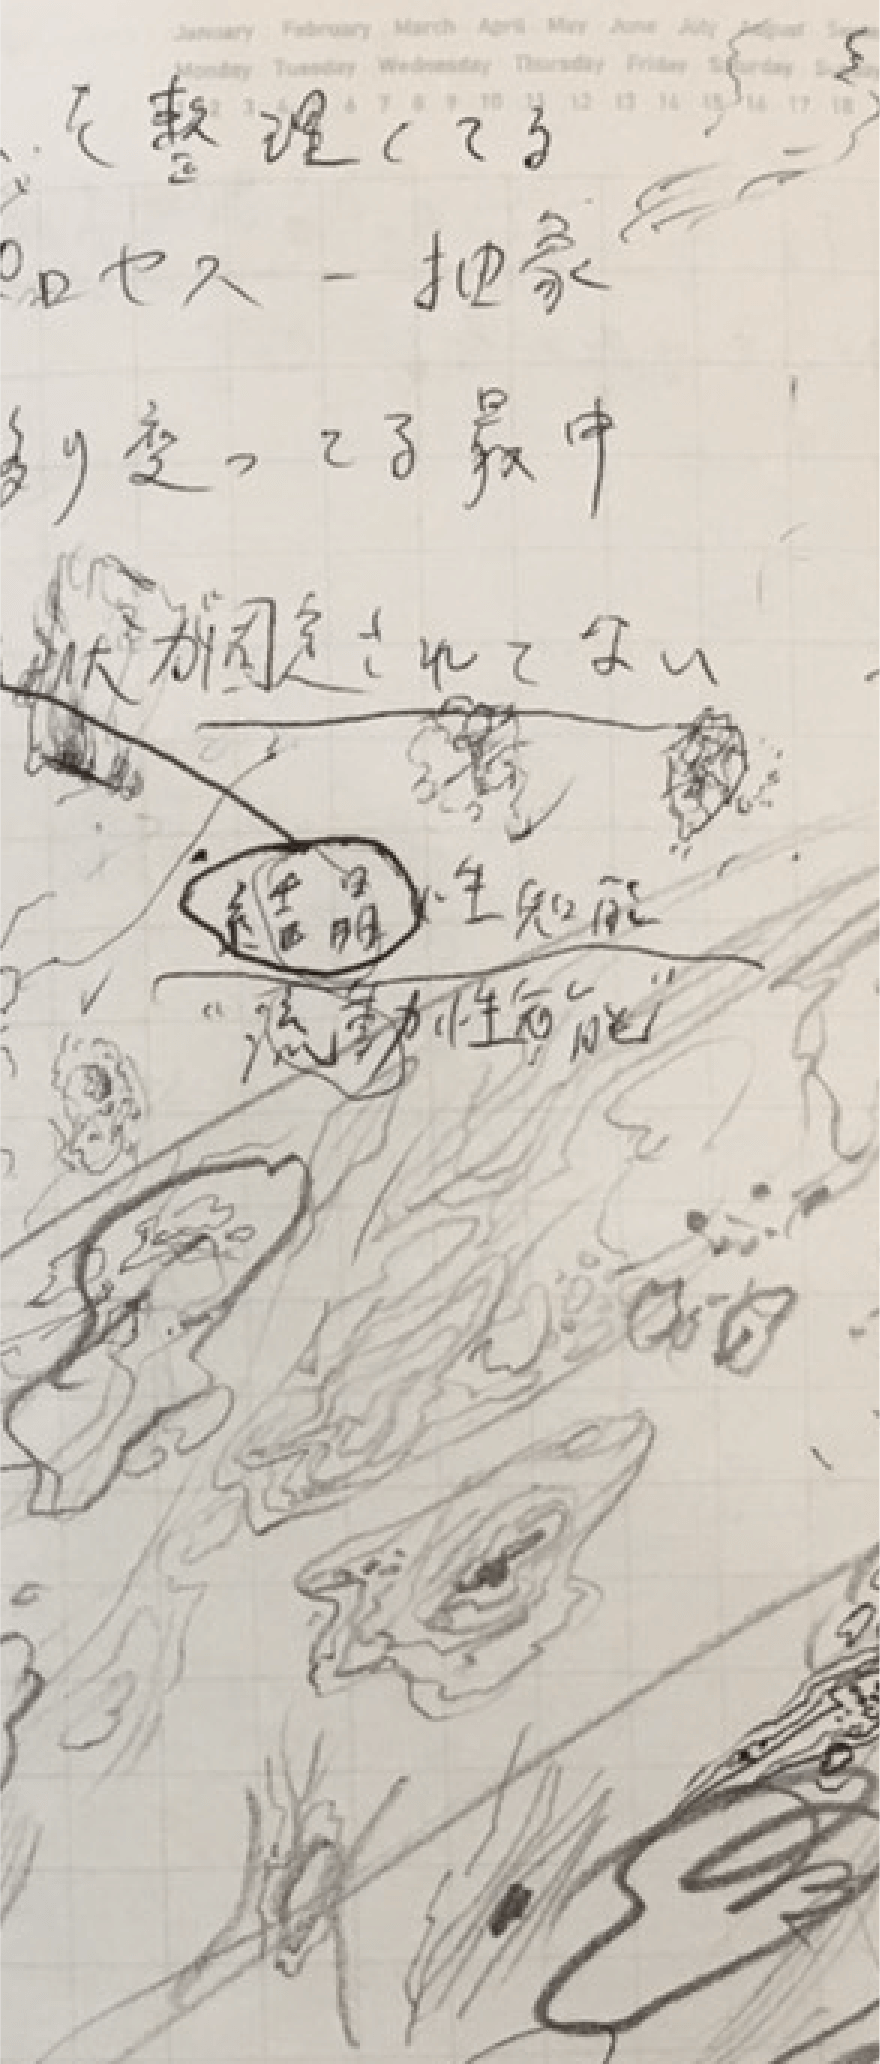 January February March April May June July August
Monday Tuesday Wednesday Thursday Friday Saturday
2 3 4 6 7 8 9 10 11 12 13 14 15 16 17 18
を整理してる
プロセス - 抽象
移り変ってる最中
状が固定されてない
結晶性知能
"流動性知能"